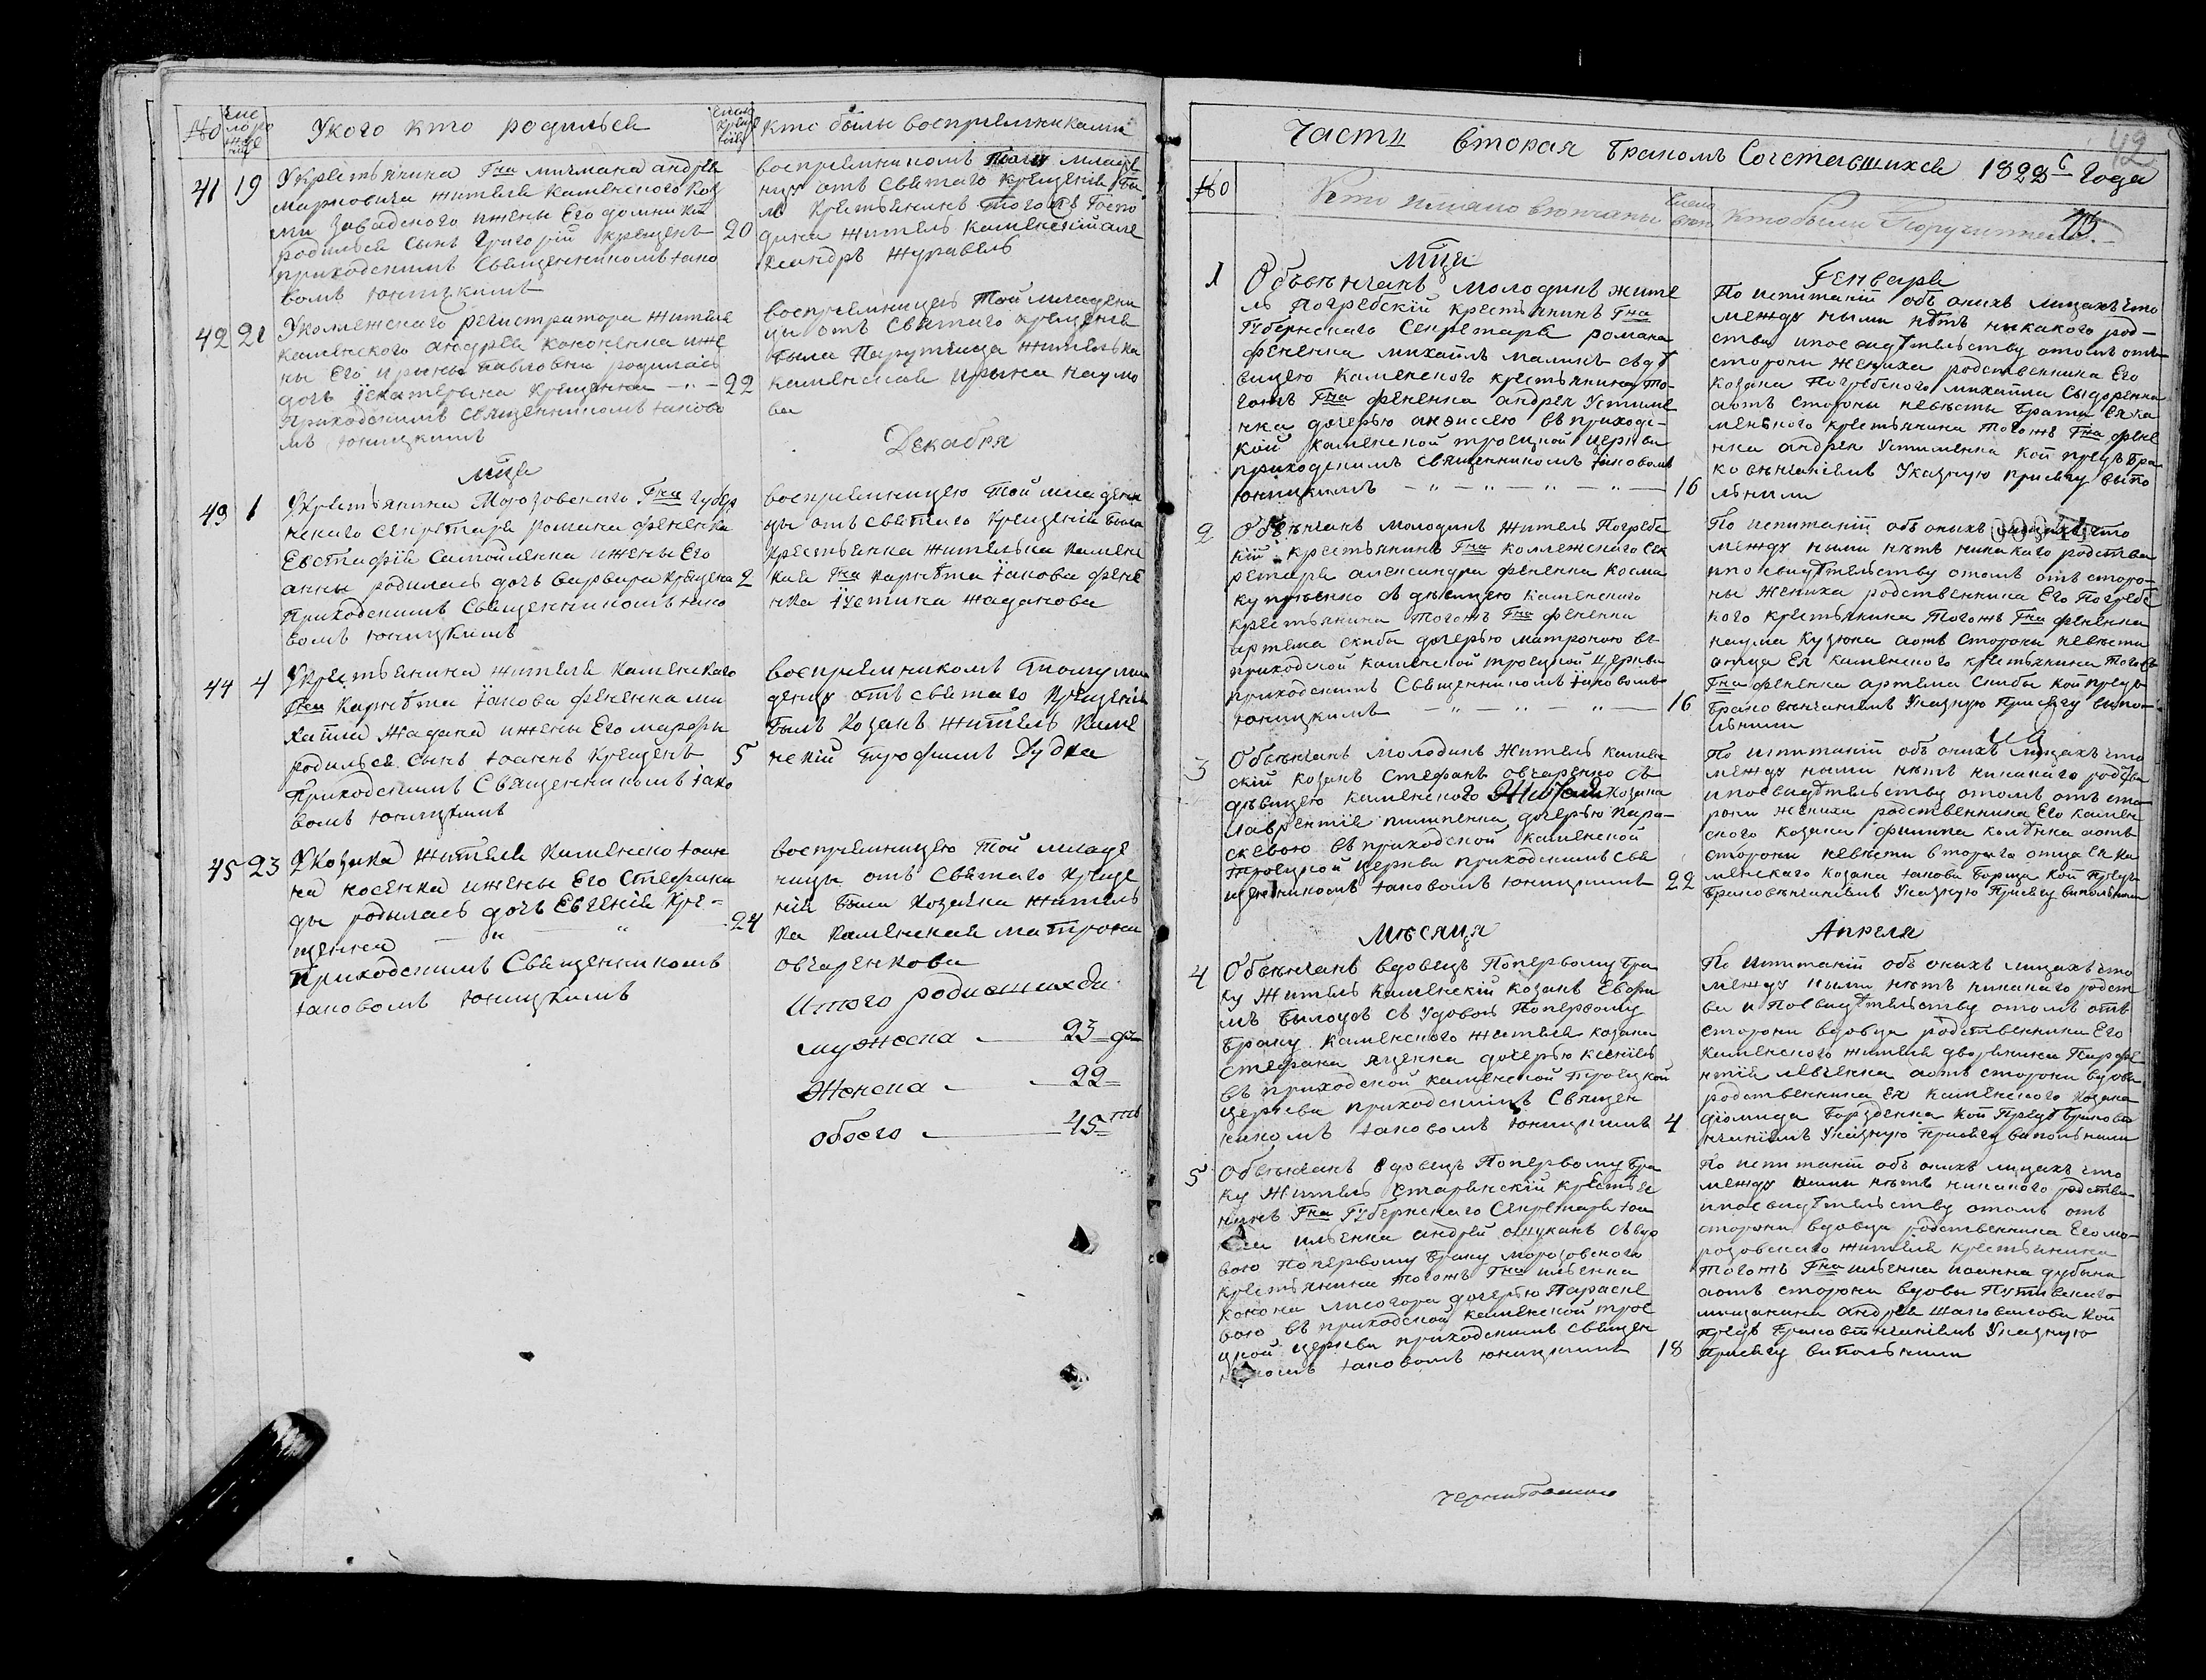 №
Число рождения
У кого кто родилься
Число крещения
Кто былы восприемниками
41
19
У крестьянина Гна мичмана андрея
марковича жителя каменского Кос
ми Завадского и жены Его домники
родилься Сынъ Григорій крещенъ
20
приходскимъ Священникомъ Іако
вомъ Юницкимъ
восприемникомъ тому младе
нцу отъ Святаго Крещенія Бы
лъ Крестьянинъ того жъ Госпо
дина житель Каменскій але
ксандръ Журавель
42
21
У коллежскаго регистратора жителя
каменского андрея кононенка и же
ны Его ирыны павловны родилась
дочь Екатерына Крещенна
22
Приходскимъ Священникомъ Іаково
мъ Юницкимъ
восприемницею той младени
цы отъ Святаго крещенія
была Парутчица жителька
каменская Ирына наумо
ва
мца
Декабря
43
1
У крестьянина Морозовского Гна Губер
нскаго Секретаря романа фененка
Евстафія Самойленка и жены Его
анны родилась дочь варвара крещена
2
Приходскимъ Священникомъ Іако
вомъ Юницкимъ
восприемницею той младени
цы отъ Святаго Крещенія была
Крестьянка жителька Камен
ская Гна Карнѣта Іакова фене
нка Іустина Жаданова
44
4
У крестьянина жителя Каменского
Гна Карнѣта Іакова фененка ми
хаила Жадана и жены Его марфы
родилься Сынъ Іоаннъ Крещенъ
5
Приходскимъ Священникомъ Іако
вомъ Юницкимъ
восприемникомъ тому мла
денцу отъ Святаго Крещенія
былъ Козакъ житель Каме
нскій Трофимъ Дудка
45
23
У Козака жителя Каменско Іоан
на косенка и жены Его Стефани
ды родылась дочь Евгенія Кре-
24
щенна
Приходскимъ Священникомъ
Іаковомъ Юницкимъ
восприемницею той младе
ницы отъ Святаго Креще
нія была Козачка житель
ка каменская матрона
овчаренкова
Итого родившихся
мужеска — 23
Женска — 22
обоего — 45
42
Часть вторая Бракомъ Сочетавшихся 1822 Года
№
Кто имано венчаны
Число венч
Кто были Поручители
мца
Генваря
1
Обвѣнчанъ молодикъ жите
ль Погребскій крестьянинъ Гна
Губернского Секретаря романа
фененка михаилъ маликъ съ дѣ
вицею Каменского крестьянина то-
гожъ Гна фененка андрея Устиме
нка дочерью анэиссею въ приходс-
кой каменской троецкой церкви
приходскимъ священникомъ Іаковомъ
Юницкимъ
16
По испитаніи объ онихъ лицахъ что
между ными нѣтъ никакого род-
ства и по свидѣтельству о томъ отъ
стороны жениха родственника Его
козака Погребского михайла Сыдоренка
а отъ Стороны невѣсты брата Ея ка
менского крестьянина тогожъ Гна фене
нка андрея Устименка кои предъ бра
ко вѣнчаніемъ Указную присягу выпо
льнили
2
Обвѣнчанъ молодикъ житель Погребс
кій крестьянинъ Гна коллежского сек
ретаря александра фененка косма
купріенко съ дѣвицею каменского
крестьянина тогожъ Гна фененка
артема скибы дочерью матроною въ
приходской каменской троецкой церкви
приходскимъ Священникомъ Іаковомъ
Юницкимъ
16
По испитаніи объ оныхъ лицахъ что
между ными нѣтъ никакого родства
и по свидѣтельству о томъ отъ сторо-
ны жениха родственника Его Погребс
кого крестьянина тогожъ Гна фененка
наума Кузюна а отъ стороны невѣсты
отца Ея каменского крестьянина тогожъ
Гна фененка артема Скибы кои предъ
браковѣнчаніемъ Указную Присягу выпо-
льнили
3
Обвѣнчанъ молодикъ житель камен
скій козакъ Стефанъ овчаренко съ
дѣвицею каменского козака
лаврентія пилипенка дочерью пара-
скевою въ приходской каменской
троецкой церкви приходскимъ свя
щенникомъ Іаковомъ Юницкимъ
22
По испитаніи объ онихъ лицахъ что
между ными нѣтъ никакого родства
и по свидѣтельству о томъ отъ сто
роны жениха родственника Его камен
ского козака филипа а отъ
стороны невѣсты второго отца Ея ка
менского козака Іакова Борща кои предъ
браковѣнчаніемъ Указную Присягу выпольнили
Мѣсяца
Апреля
4
Обвѣнчанъ вдовецъ По первому бра
ку житель каменскій козакъ Евфи
мъ Білоусъ съ Удовой по первому
браку каменского жителя козака
Стефана яценка дочерью ксеніею
въ приходской каменской троецкой
церкви приходскимъ Священ
никомъ Іаковомъ Юницкимъ
4
По испитаніи объ онихъ лицахъ что
между ными нѣтъ никакого родст
ва и по свидѣтельству о томъ отъ
стороны вдовца родственника Его
каменского жителя дворянина Парфе
нтія левченка а отъ стороны вдовы
родственника Ея каменского козака
діомида Борзденка кои предъ браково
нчаніемъ Указную присягу выпольнили
5
Обвѣнчанъ вдовецъ По первому бра
ку житель старинскій крестья
нинъ Гна Губернского Секретаря Іоа
нна ильенка андрей съ вдо
вою по первому браку морозовского
крестьянина тогожъ Гна ильенка
конона лисогора дочерью Параске
вою въ приходской каменской трое
цкой церкви приходскимъ священ
никомъ Іаковомъ Юницкимъ
18
По испитаніи объ онихъ лицахъ что
между ними нѣтъ никакого родства
и по свидѣтельству о томъ отъ
стороны вдовца родственника Его мо-
розовского жителя крестьянина
тогожъ Гна ильенка иоанна дубына
а отъ стороны вдовы Путивского
мищанина андрея шаповалова кои
предъ браковѣнчаніемъ Указную
Присягу выпольнили